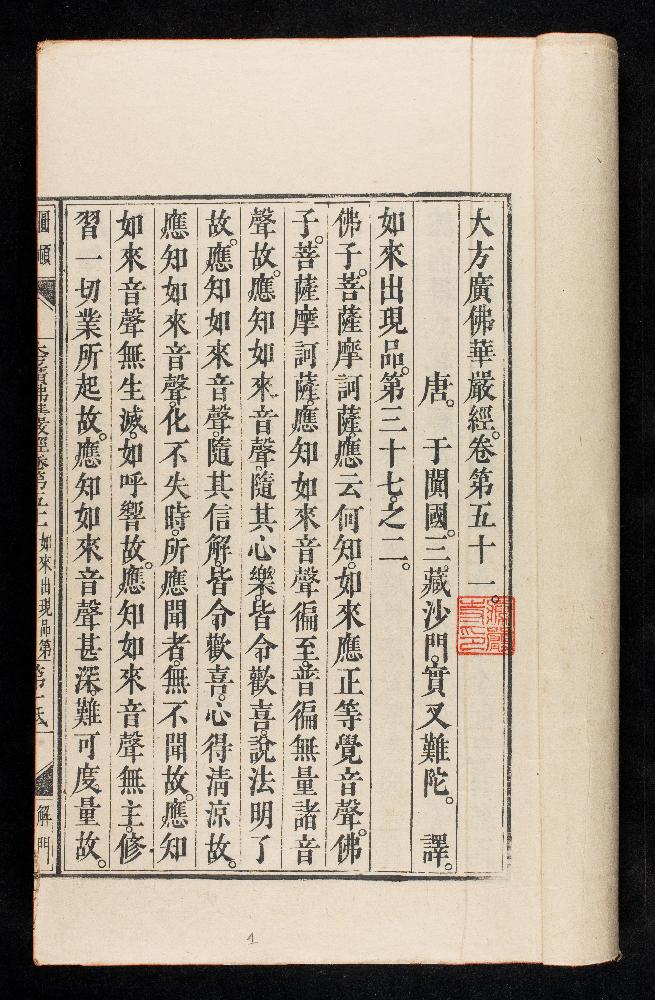 大方廣佛華嚴經。卷第五十一。
唐。于闐國。三藏沙門。實叉難陀。譯。
如來出現品。第三十七之二。
佛子。菩薩摩訶薩。應云何知。如來應正等覺音聲。佛
子。菩薩摩訶薩。應知如來音聲徧至。普徧無量諸音
聲故。應知如來音聲。隨其心樂。皆令歡喜。說法明了
故。應知如來音聲。隨其信解。皆令歡喜。心得清涼故。
應知如來音聲。化不失時。所應聞者。無不聞故。應知
如來音聲無生滅。如呼響故。應知如來音聲無主。修
習一切業所起故。應知如來音聲甚深。難可度量故。
大方廣佛華嚴經卷第五十一 如來出現品第
解門